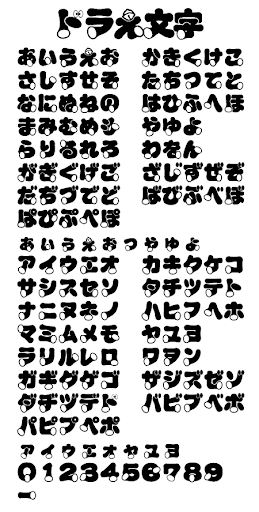 ドラえ文字
あいうえお かきくけこ
さしすせそ たちつてと
なにぬねの はひふへほ
まみむめも やゆよ
らりるれろ わをん
がぎぐげご ざじずぜぞ
だぢづでど ばびぶべぼ
ぱぴぷぺぽ
ぁぃぅぇぉっゃゅょ
アイウエオ カキクケコ
サシスセソ タチツテト
ナニヌネノ ハヒフヘホ
マミムメモ ヤユヨ
ラリルレロ ワヲン
ガギグゲゴ ザジズゼゾ
ダヂヅデド バビブベボ
パピプペポ
ァィゥェォャュョ
0123456789
ー